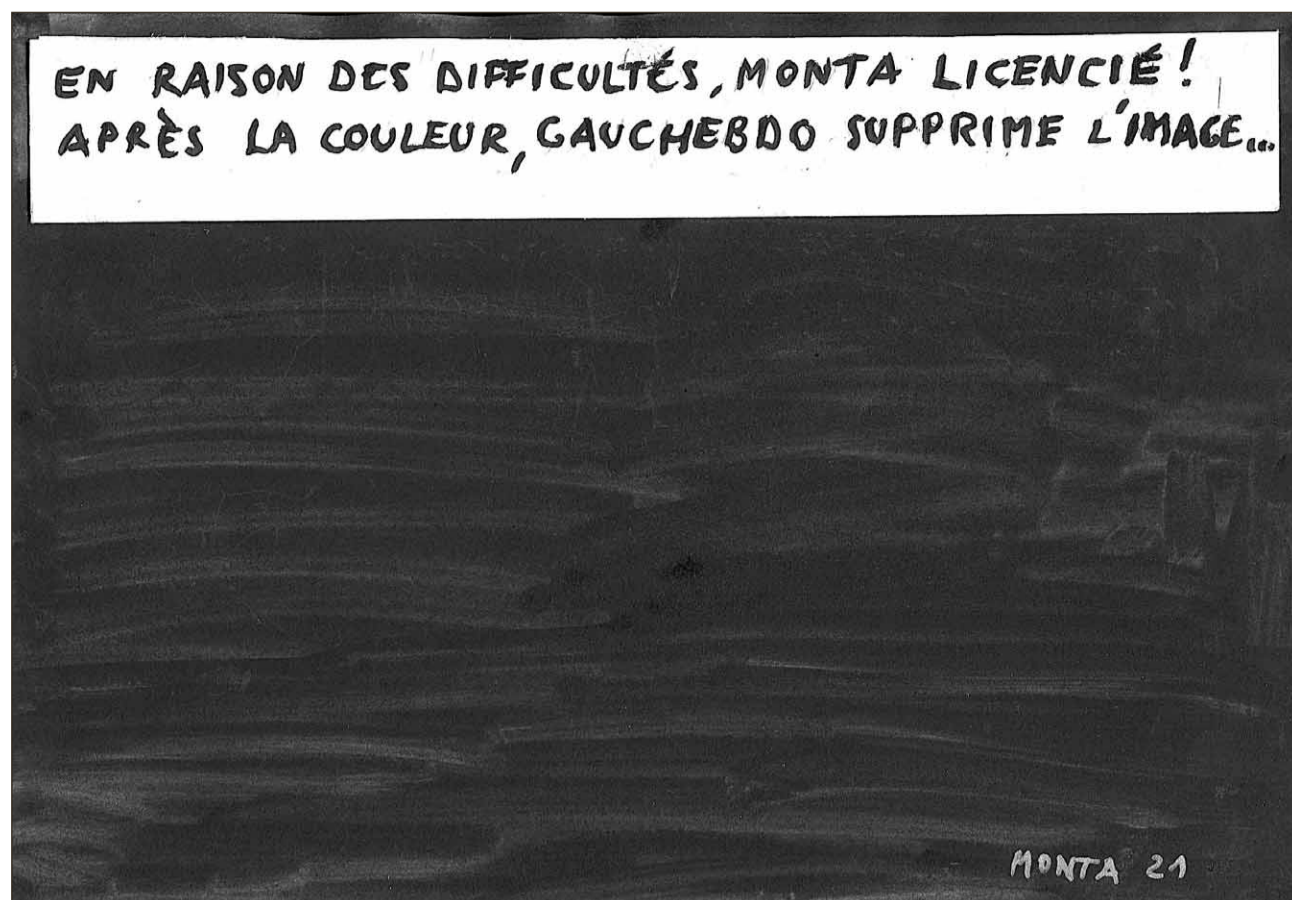 EN RAISON DES DIFFICULTÉS, MONTA LICENCIÉ!
APRÈS LA COULEUR, GAUCHEBDO SUPPRIME L'IMAGE...
MONTA 21